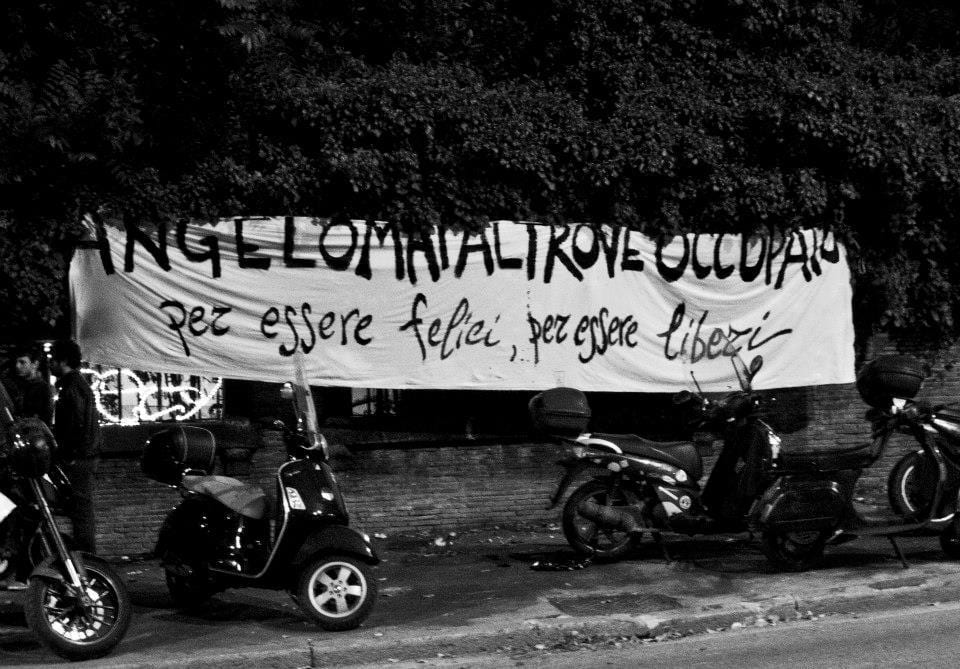 ANGELO MAI ALTROVE OCCUPATO
per essere felici, per essere liberi